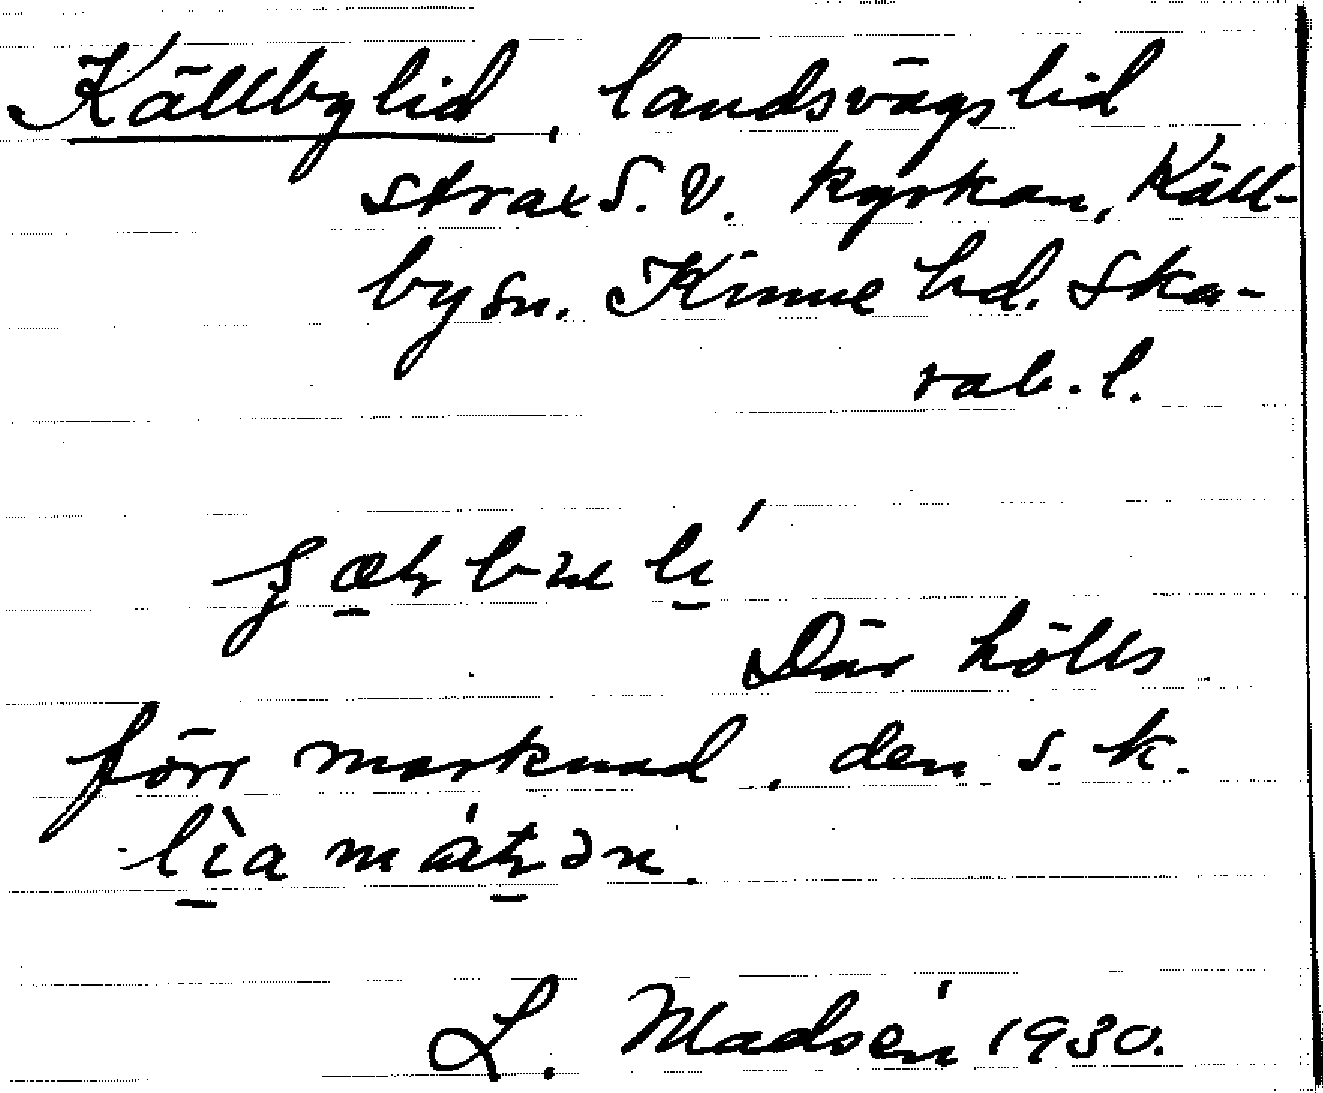 Källby lid, landsvägslid
strax S. V. kyrkan, Käll-
by sn. Kinne hd. Ska-
rab. l.
Där hölls
förr marknad, den s. k.
L. Madsén 1930.